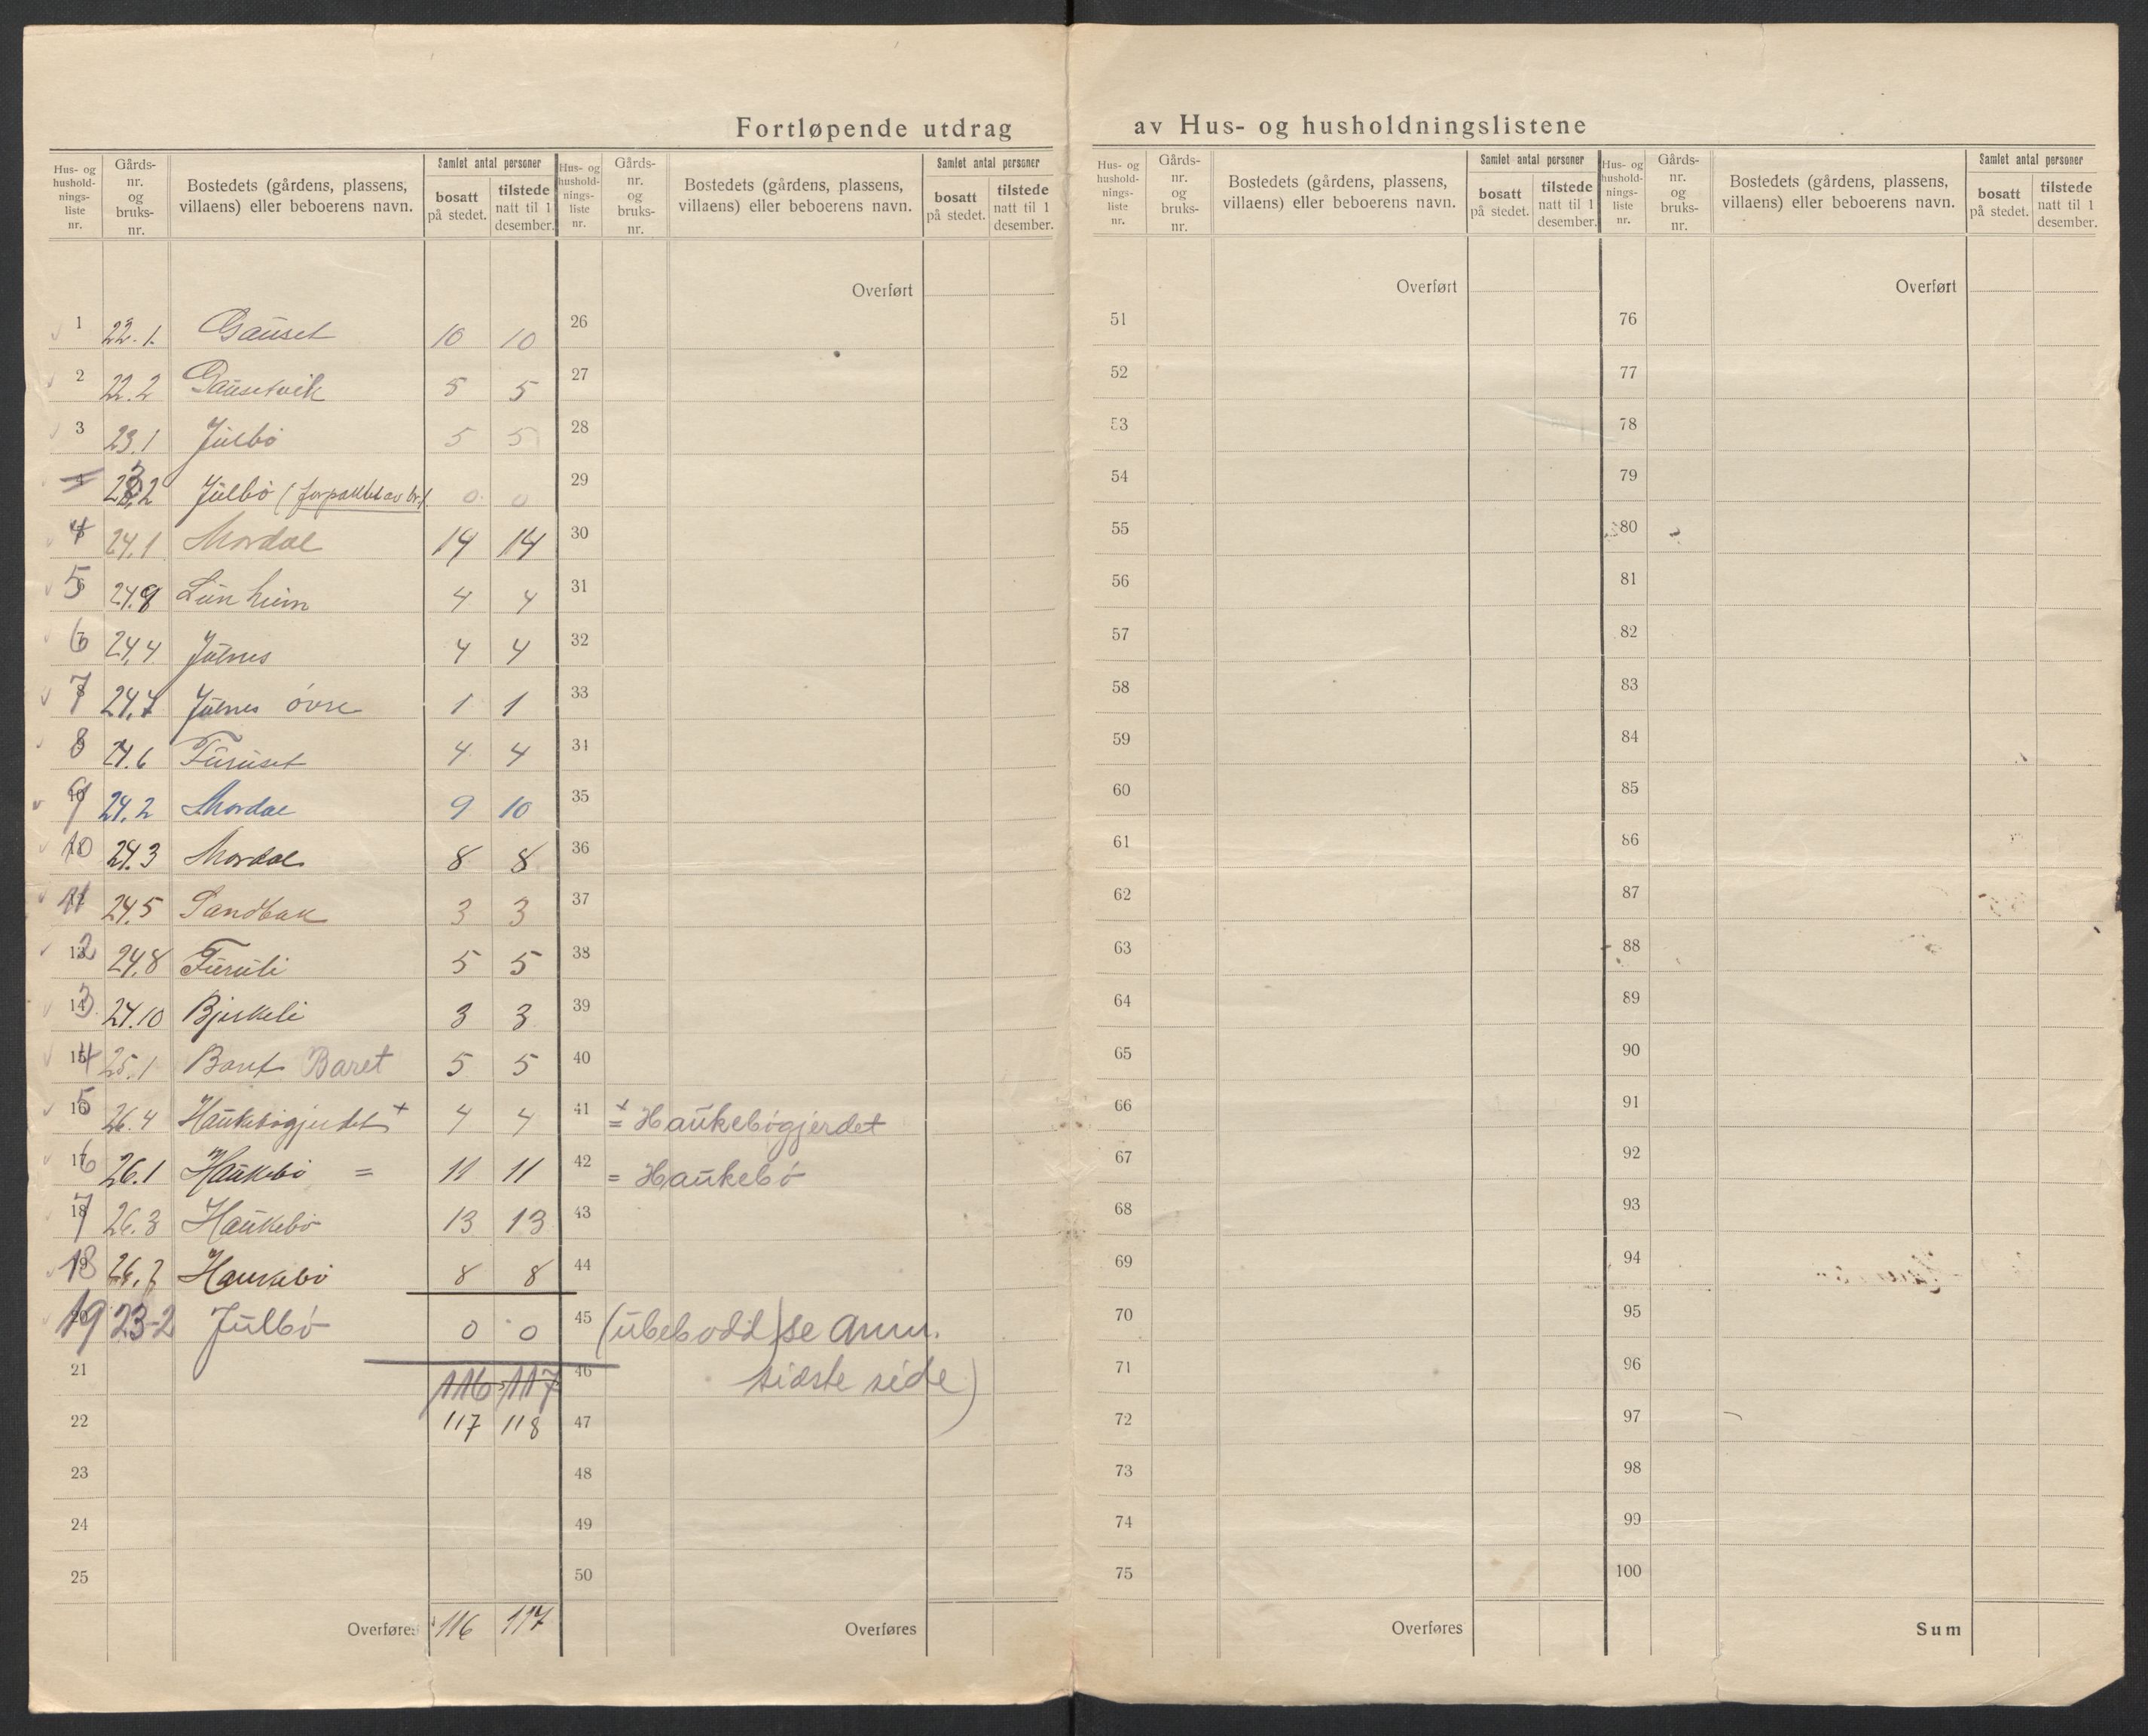 Fortløpende utdrag av Hus- og husholdningslistene
Hus- og hushold-nings-liste nr. Gårds-nr. og bruks-nr. Bostedets (gårdens, plassens, villaens) eller beboerens navn. Samlet antal personer bosatt på stedet. tilstede natt til 1 desember.
Hus- og hushold-nings-liste nr. Gårds-nr. og bruks-nr. Bostedets (gårdens, plassens, villaens) eller beboerens navn. Samlet antal personer bosatt på stedet. tilstede natt til 1 desember.
Hus- og hushold-nings-liste nr. Gårds-nr. og bruks-nr. Bostedets (gårdens, plassens, villaens) eller beboerens navn. Samlet antal personer bosatt på stedet. tilstede natt til 1 desember.
Hus- og hushold-nings-liste nr. Gårds-nr. og bruks-nr. Bostedets (gårdens, plassens, villaens) eller beboerens navn. Samlet antal personer bosatt på stedet. tilstede natt til 1 desember.
Overført Overført Overført
1 22.1. Gauset 10 10 26 51 76
2 22.2 Gausetvik 5 5 27 52 77
3 23.1 Julbö 5 5 28 53 78
4 23.2 Julbö (forpaktet av br.1 0 0 29 54 79
4 24.1 Mordal 14 14 30 55 80
5 24.9 Lunheim 4 4 31 56 81
6 24.4 Julnes 4 4 32 57 82
7 24.7 Julnes övre 1 1 33 58 83
8 24.6 Furuset 4 4 34 59 84
9 24.2 Mordal 9 10 35 60 85
10 24.3 Mordal 8 8 36 61 86
11 24.5 Sandbak 3 3 37 62 87
12 24.8 Furuli 5 5 38 63 88
13 24.10 Bjerkeli 3 3 39 64 89
14 25.1 Baret Baret 5 5 40 65 90
15 26.4 Haukebögjerdet + 4 4 41 + = Haukebögjerdet 66 91
16 26.1 Haukebö = 11 11 42 = Haukebö 67 92
17 26.3 Haukebö 13 13 43 68 93
18 26.2 Haukebö 8 8 44 69 94
19 23-2 Julbö 0 0 45 (ubebodd) se anm. 70 95
21 116 117 46 sidste side) 71 96
22 117 118 47 72 97
23 48 73 98
24 49 74 99
25 50 75 100
Overføres 116 117 Overføres Overføres Sum